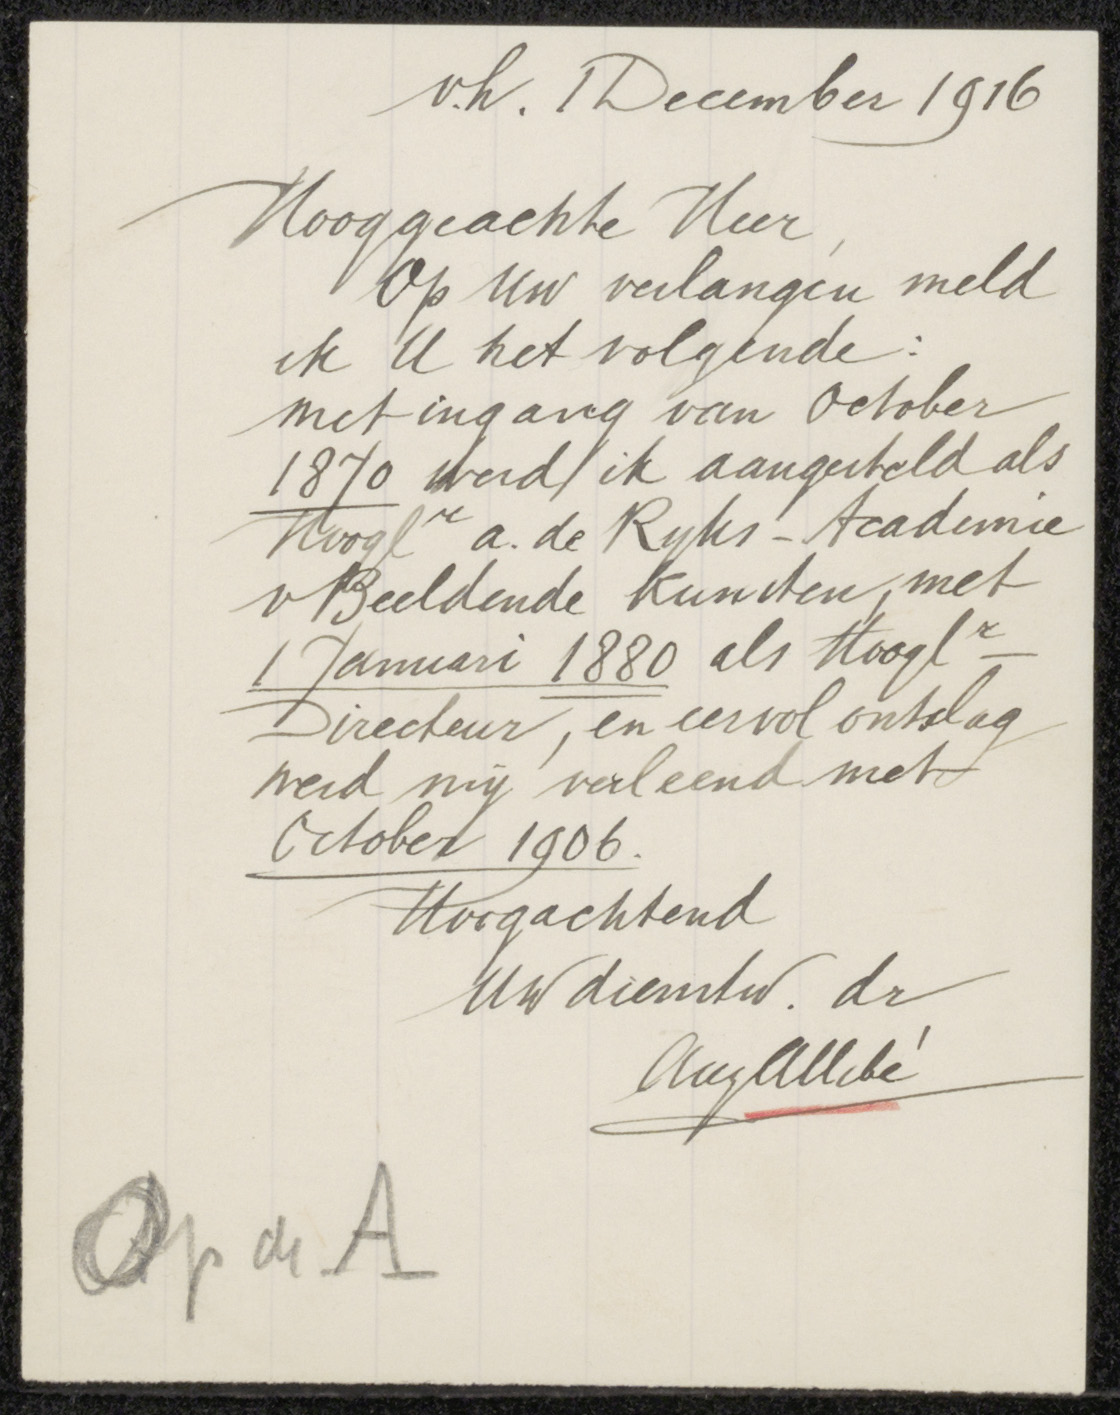 v.h. 1 December 1916
Hooggeachte Heer,
Op Uw verlangen meld
ik U het volgende:
met ingang van October
1870 werd ik aangesteld als
Hooglr a. de Ryks-Academie
v Beeldende Kunsten, met
1 Januari 1880 als Hooglr
Directeur, en eervol ontslag
werd mij verleend met
October 1906.
Hoogachtend
Uw dienstw. dr
Aug Allebé
Op de A